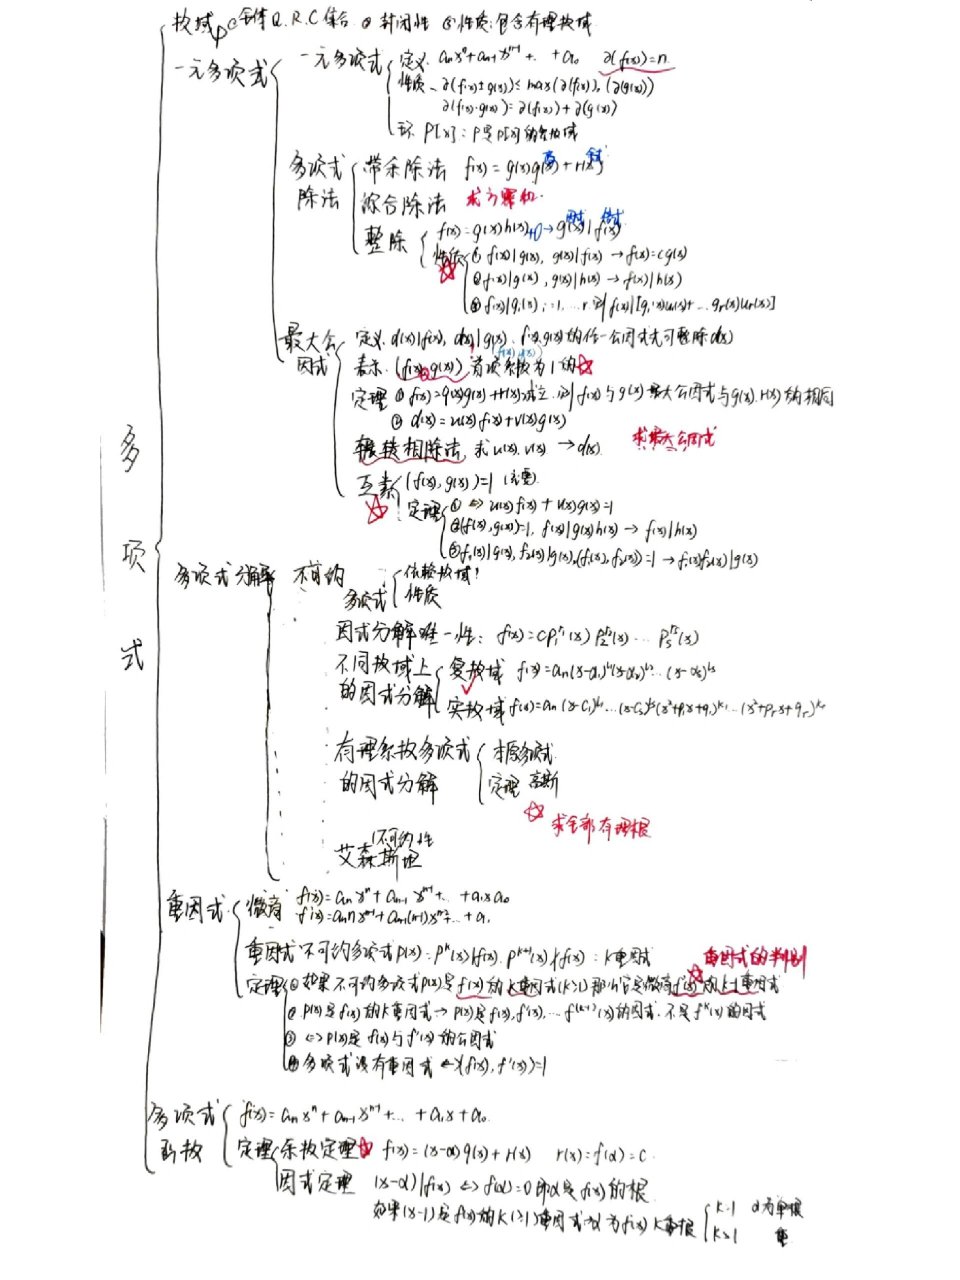 多项式
数域 P ①全体Q.R.C集合 ② 封闭性 ③性质:包含有理数域
一元多项式
一元多项式 定义 aₙxⁿ+aₙ₋₁xⁿ⁻¹+..+a₀ ∂(f(x))=n
性质 ∂(f(x)±g(x))≤max(∂(f(x)),(∂(g(x)))
∂(f(x)·g(x))=∂(f(x))+∂(g(x))
环 P[x]:P是P[x]的系数域
多项式除法
带余除法 f(x)=q(x)g(x)+r(x)
综合除法 求方幂和
整除 f(x)=g(x)h(x)+0→g(x)|f(x)
性质 ① f(x)|g(x), g(x)|f(x) → f(x)=cg(x)
② f(x)|g(x), g(x)|h(x) → f(x)|h(x)
③ f(x)|gᵢ(x), i=1,...r 则 f(x)|[g₁(x)u₁(x)+...gᵣ(x)uᵣ(x)]
最大公因式
定义 d(x)|f(x), d(x)|g(x). f(x),g(x)的任一公因式都可整除d(x)
表示 (f(x),g(x)) 首项系数为1的
定理 ① f(x)=q(x)g(x)+r(x)成立,则f(x)与g(x)最大公因式与g(x),r(x)的相同
② d(x)=u(x)f(x)+v(x)g(x)
辗转相除法 求u(x).v(x) → d(x) 求最大公因式
互素 (f(x),g(x))=1
定理 ① ⇔ u(x)f(x)+v(x)g(x)=1
② (f(x),g(x))=1, f(x)|g(x)h(x) → f(x)|h(x)
③ f₁(x)|g(x), f₂(x)|g(x),(f₁(x),f₂(x))=1 → f₁(x)f₂(x)|g(x)
多项式分解
不可约多项式 依赖数域!
性质
因式分解唯一性: f(x)=cp₁^r₁(x)p₂^r₂(x)...pₛ^rₛ(x)
不同数域上的因式分解
复数域 f(x)=aₙ(x-α₁)^l₁(x-α₂)^l₂...(x-αₛ)^lₛ
实数域 f(x)=aₙ(x-c₁)^l₁...(x-cₛ)^lₛ(x²+p₁x+q₁)^k₁...(x²+pᵣx+qᵣ)^kᵣ
有理系数多项式的因式分解
本原多项式
定理 高斯
求全部有理根
(不可约性
艾森斯坦
重因式
微商 f(x)=aₙxⁿ+aₙ₋₁xⁿ⁻¹+...+a₁x a₀
f'(x)=aₙnxⁿ⁻¹+aₙ₋₁(n-1)xⁿ⁻²+..+a₁
重因式 不可约多项式p(x):p^k(x)|f(x).p^(k+1)(x)∤f(x):k重因式 重因式的判别
定理 ① 如果不可约多项式p(x)是f(x)的k重因式(k≥1)那么它是微商f'(x)的k-1重因式
② p(x)是f(x)的k重因式→p(x)是f(x),f'(x),...f^(k-1)(x)的因式.不是f^k(x)的因式
③ ⇔p(x)是f(x)与f'(x)的公因式
④ 多项式没有重因式 ⇔(f(x),f'(x))=1
多项式函数
f(x)=aₙxⁿ+aₙ₋₁xⁿ⁻¹+...+a₁x+a₀
定理 余数定理 f(x)=(x-α)q(x)+r(x) r(x)=f(α)=c
因式定理 (x-α)|f(x) ⇔ f(α)=0 即α是f(x)的根
如果(x-1)是f(x)的k(≥1)重因式→α为f(x)k重根
k=1 α为单根
k>1 重